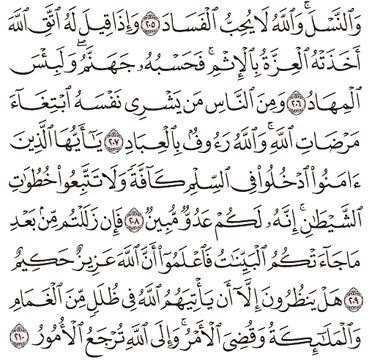 وَالنَّسْلَ ۗ وَاللَّهُ لَا يُحِبُّ الْفَسَادَ ۝٢٠٥ وَإِذَا قِيلَ لَهُ اتَّقِ اللَّهَ
أَخَذَتْهُ الْعِزَّةُ بِالْإِثْمِ ۚ فَحَسْبُهُ جَهَنَّمُ ۚ وَلَبِئْسَ
الْمِهَادُ ۝٢٠٦ وَمِنَ النَّاسِ مَن يَشْرِي نَفْسَهُ ابْتِغَاءَ
مَرْضَاتِ اللَّهِ ۗ وَاللَّهُ رَءُوفٌ بِالْعِبَادِ ۝٢٠٧ يَا أَيُّهَا الَّذِينَ
ءَامَنُوا ادْخُلُوا فِي السِّلْمِ كَافَّةً وَلَا تَتَّبِعُوا خُطُوَاتِ
الشَّيْطَانِ ۚ إِنَّهُ لَكُمْ عَدُوٌّ مُّبِينٌ ۝٢٠٨ فَإِن زَلَلْتُم مِّن بَعْدِ
مَا جَاءَتْكُمُ الْبَيِّنَاتُ فَاعْلَمُوا أَنَّ اللَّهَ عَزِيزٌ حَكِيمٌ
۝٢٠٩ هَلْ يَنظُرُونَ إِلَّا أَن يَأْتِيَهُمُ اللَّهُ فِي ظُلَلٍ مِّنَ الْغَمَامِ
وَالْمَلَائِكَةُ وَقُضِيَ الْأَمْرُ ۚ وَإِلَى اللَّهِ تُرْجَعُ الْأُمُورُ ۝٢١٠